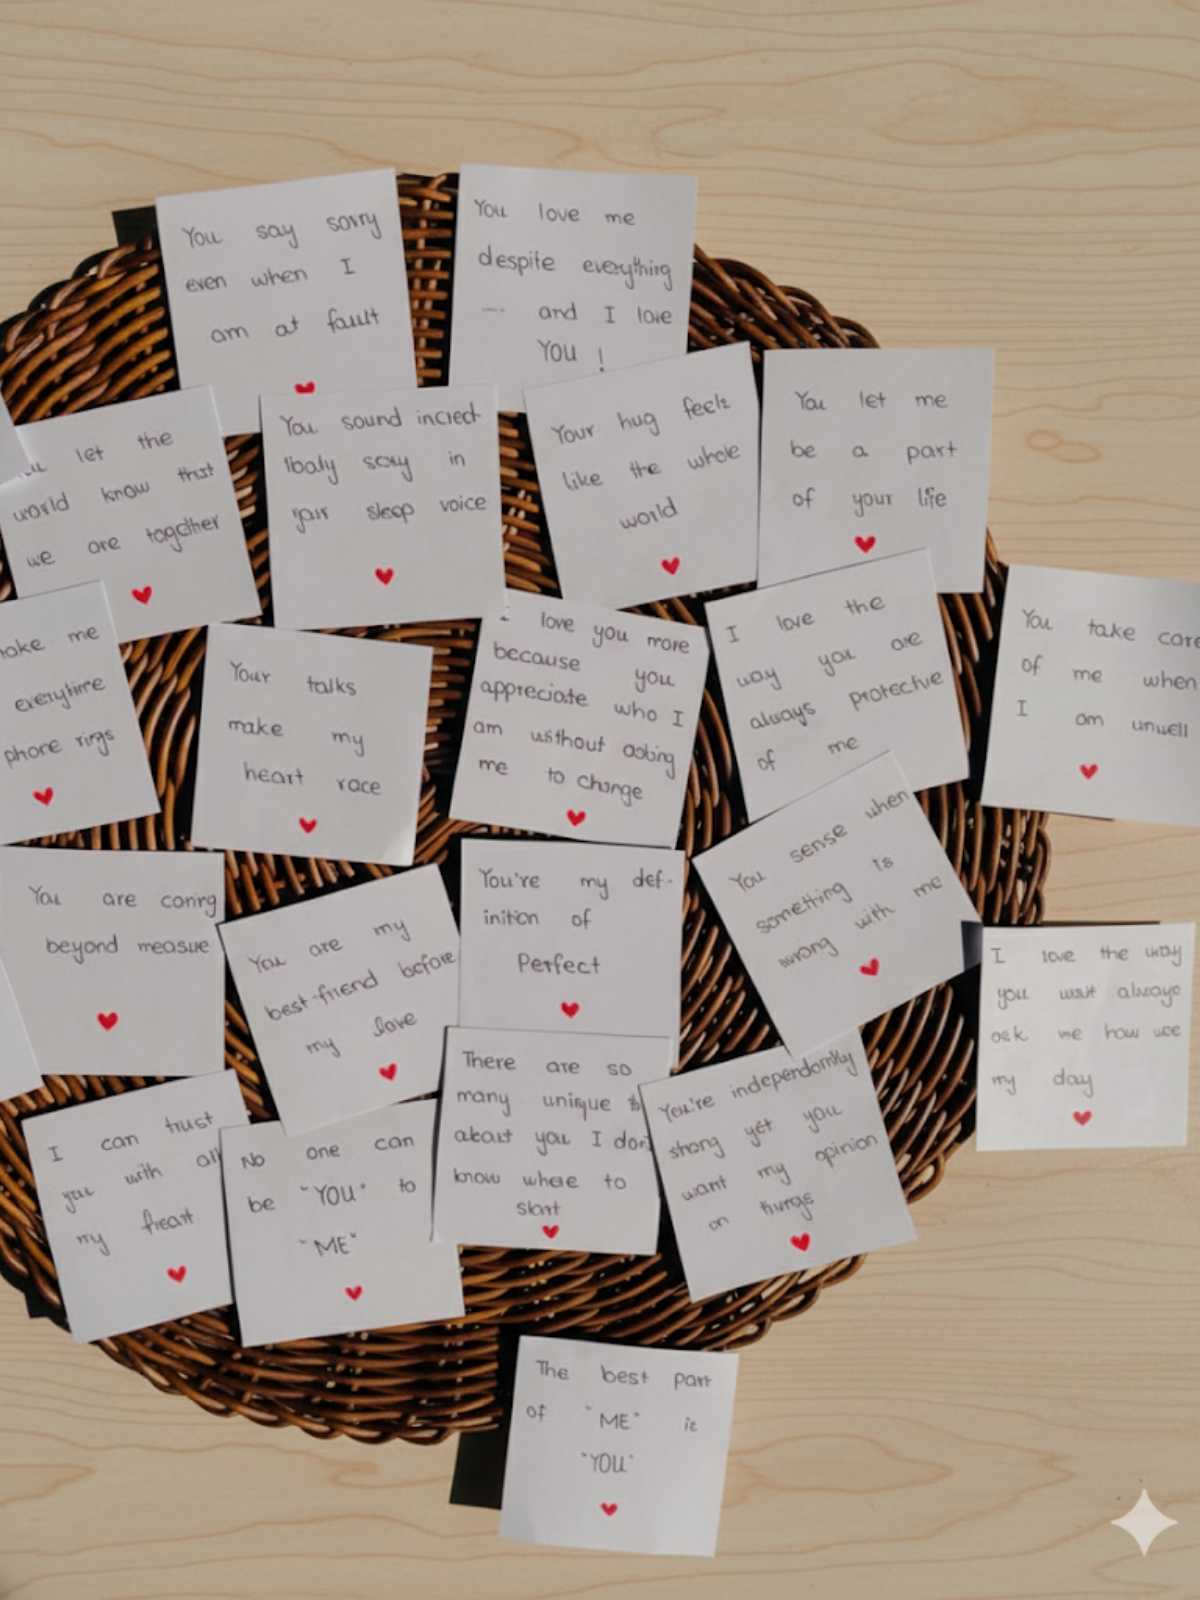 You say sorry
even when I
am at fault
You love me
despite everything
.... and I love
YOU !
let the
world know that
we are together
You sound incred-
ibaly sexy in
your sleep voice
Your hug feels
like the whole
world
You let me
be a part
of your life
me
everytime
phone rings
Your talks
make my
heart race
love you more
because you
appreciate who I
am without asking
me to change
I love the
way you are
always protective
of me
You take care
of me when
I am unwell
You are caring
beyond measure
You are my
best-friend before
my love
You're my def-
inition of
Perfect
You sense when
something is
wrong with me
I love the way
you always
ask me how
my day
I can trust
you with all
my heart
No one can
be "YOU" to
"ME"
There are so
many unique
about you I don't
know where to
start
You're independently
strong yet you
want my opinion
on things
The best part
of "ME" is
"YOU"